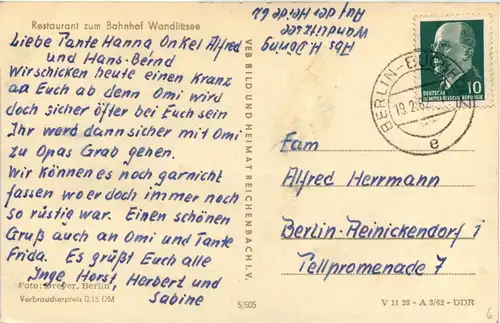 Restaurant zum Bahnhof Wandlitzsee
Liebe Tante Hanna, Onkel Alfred
und Hans-Bernd
Wir schicken heute einen Kranz
an Euch ab denn Omi wird
doch sicher öfter bei Euch sein
Ihr werd dann sicher mit Omi
zu Opas Grab gehen.
Wir können es noch garnicht
fassen wo er doch immer noch
so rüstig war. Einen schönen
Gruß auch an Omi und Tante
Frida. Es grüßt Euch alle
Inge, Horst, Herbert und
Sabine
Foto: Dreyer, Berlin
Verbraucherpreis 0,15 DM
VEB BILD UND HEIMAT REICHENBACH I. V.
5/505
Abs. H. Döring
Wandlitzsee
Auf der Heide 62
BERLIN-BUCH
19.2.
e
DEUTSCHE
DEMOKRATISCHE REPUBLIK
10
Fam
Alfred Herrmann
Berlin-Reinickendorf 1
Tellpromenade 7
V 11 28 - A 3/62 - DDR
6